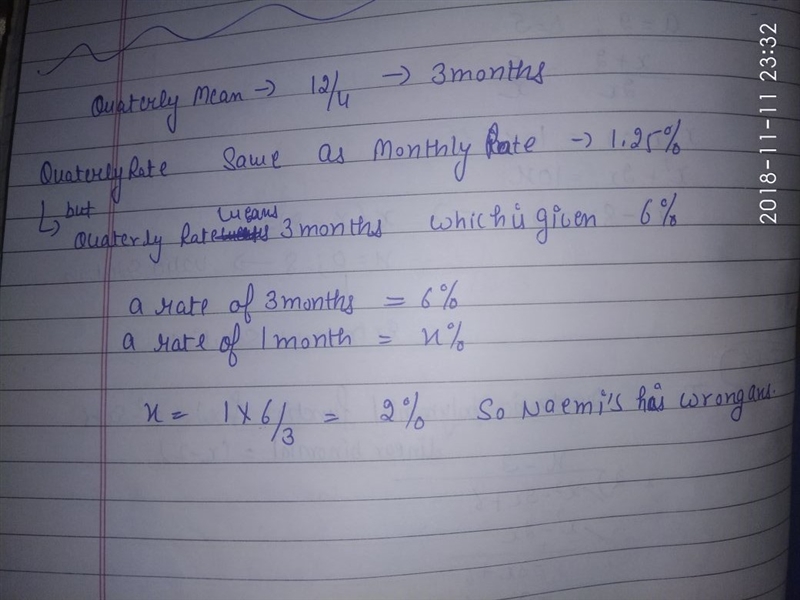 Quaterly Mean → 12/4 → 3months
Quaterly Rate Same as Monthly Rate → 1.25%
but
means
Quaterly Rate 3months which is given 6%
a rate of 3months = 6%
a rate of 1month = x%
x = 1 x 6/3 = 2% So Naemi's has wrong ans.
2018-11-11 23:32